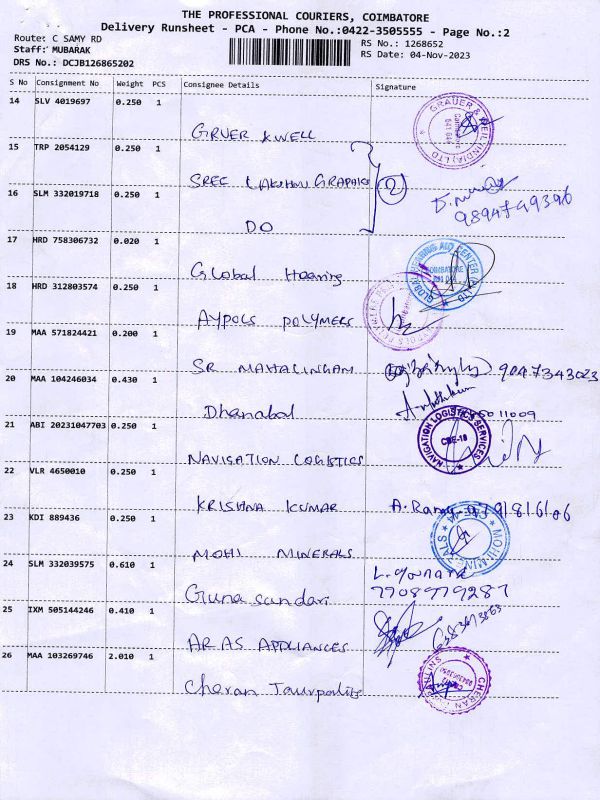 THE PROFESSIONAL COURIERS, COIMBATORE
Delivery Runsheet - PCA - Phone No.:0422-3505555 - Page No.:2
Route: C SAMY RD
Staff: MUBARAK
DRS No.: DCJB126865202
RS No.: 1268652
RS Date: 04-Nov-2023
S No Consignment No Weight PCS Consignee Details Signature
14 SLV 4019697 0.250 1 GRUER KWELL
15 TRP 2054129 0.250 1 SREE LAKSHMI GRAPHICS
16 SLM 332019718 0.250 1 DO
2
9894749396
17 HRD 758306732 0.020 1 Global Hearing
18 HRD 312803574 0.250 1 AYPOLS POLYMERS
19 MAA 571824421 0.200 1 SR MAHALINGAM 9047343023
20 MAA 104246034 0.430 1 Dhanabal
21 ABI 20231047703 0.250 1 NAVIGATION LOGISTICS
NAVIGATION LOGISTICS SERVICES
CBE-18
22 VLR 4650010 0.250 1 KRISHNA KUMAR
23 KDI 889436 0.250 1 MOHI MINERALS
MOHI MINERALS
24 SLM 332039575 0.610 1 Guna sundari
7708979287
25 IXM 505144246 0.410 1 AR AS APPLIANCES
26 MAA 103269746 2.010 1 Cheran
CHERAN